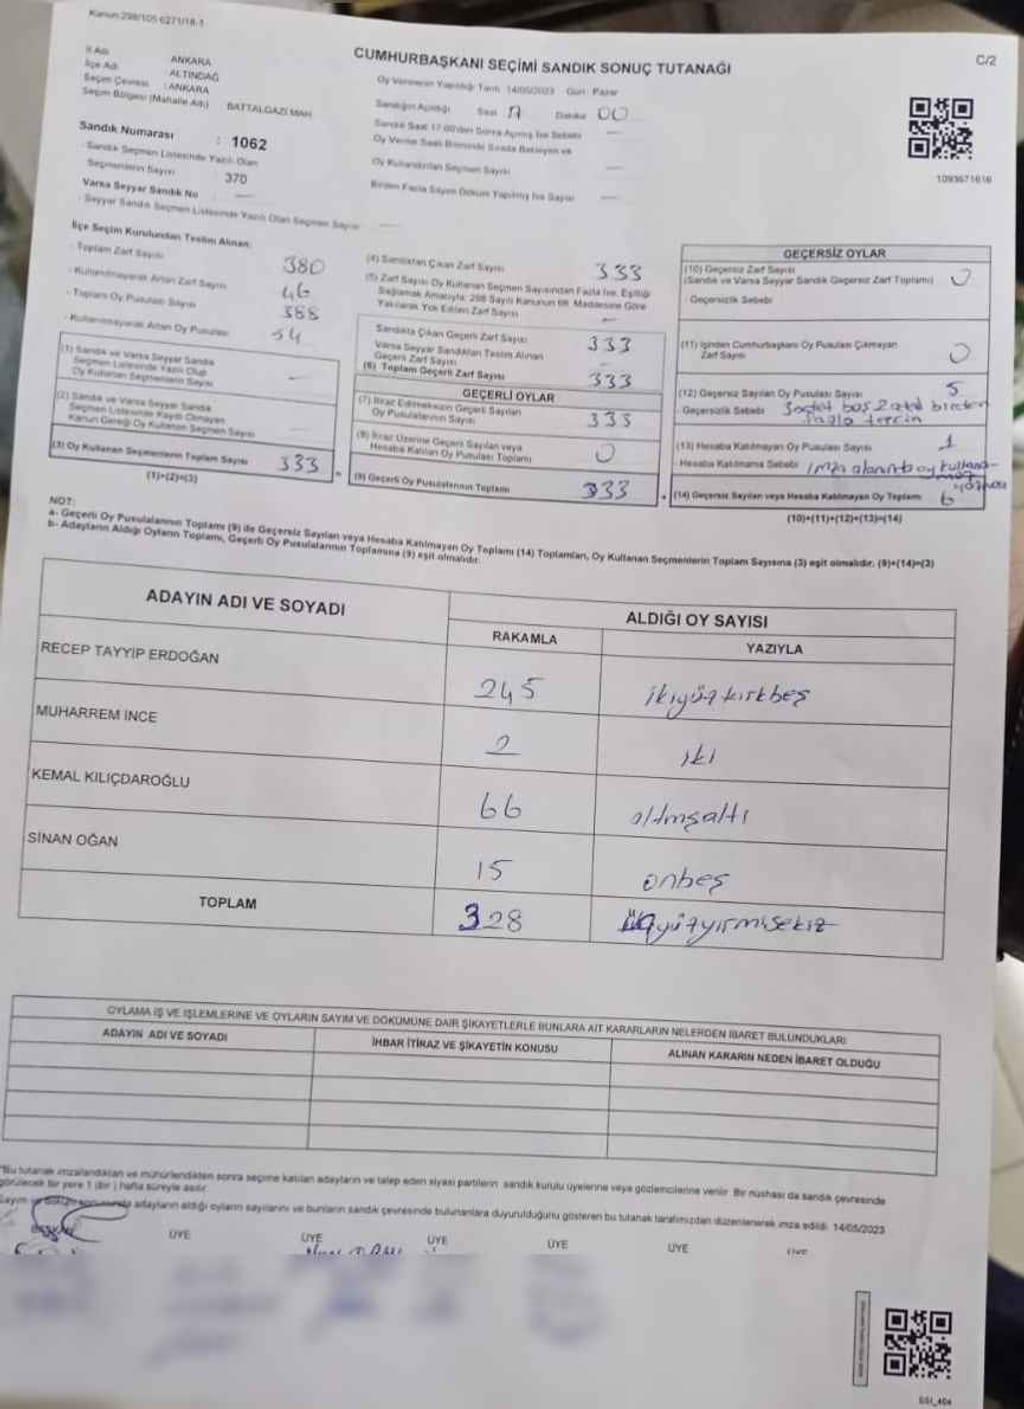 Kanun:298/105 6271/18-1
C/2
CUMHURBAŞKANI SEÇİMİ SANDIK SONUÇ TUTANAĞI
İl Adı ANKARA
İlçe Adı ALTINDAĞ
Seçim Çevresi : ANKARA
Seçim Bölgesi (Mahalle Adı) BATTALGAZİ MAH.
Sandık Numarası : 1062
- Sandık Seçmen Listesinde Yazılı Olan
Seçmenlerin Sayısı 370
Varsa Seyyar Sandık No —
- Seyyar Sandık Seçmen Listesinde Yazılı Olan Seçmen Sayısı —
Oy Vermenin Yapıldığı Tarih 14/05/2023 Gün: Pazar
Sandığın Açıldığı Saat 17 Dakika 00
Sandık Saat 17:00'den Sonra Açılmış İse Sebebi —
Oy Verme Saati Bitiminde Sırada Bekleyen ve
Oy Kullandırılan Seçmen Sayısı —
Birden Fazla Sayım Döküm Yapılmış İse Sayısı —
1093671616
İlçe Seçim Kurulundan Teslim Alınan:
- Toplam Zarf Sayısı 380
- Kullanılmayarak Artan Zarf Sayısı 46
- Toplam Oy Pusulası Sayısı 388
- Kullanılmayarak Artan Oy Pusulası 54
(1) Sandık ve Varsa Seyyar Sandık
Seçmen Listesinde Yazılı Olup
Oy Kullanan Seçmenlerin Sayısı —
(2) Sandık ve Varsa Seyyar Sandık
Seçmen Listesinde Kayıtlı Olmayan
Kanun Gereği Oy Kullanan Seçmen Sayısı —
(3) Oy Kullanan Seçmenlerin Toplam Sayısı 333
(1)+(2)=(3)
(4) Sandıktan Çıkan Zarf Sayısı 333
(5) Zarf Sayısı Oy Kullanan Seçmen Sayısından Fazla İse, Eşitliği
Sağlamak Amacıyla; 298 Sayılı Kanunun 98. Maddesine Göre
Yakılarak Yok Edilen Zarf Sayısı —
Sandıkta Çıkan Geçerli Zarf Sayısı 333
Varsa Seyyar Sandıktan Teslim Alınan
Geçerli Zarf Sayısı —
(6) Toplam Geçerli Zarf Sayısı 333
GEÇERLİ OYLAR
(7) İtiraz Edilmeksizin Geçerli Sayılan
Oy Pusulalarının Sayısı 333
(8) İtiraz Üzerine Geçerli Sayılan veya
Hesaba Katılan Oy Pusulası Toplamı 0
(9) Geçerli Oy Pusulalarının Toplamı 333
GEÇERSİZ OYLAR
(10) Geçersiz Zarf Sayısı
(Sandık ve Varsa Seyyar Sandık Geçersiz Zarf Toplamı) 0
- Geçersizlik Sebebi
(11) İçinden Cumhurbaşkanı Oy Pusulası Çıkmayan
Zarf Sayısı 0
(12) Geçersiz Sayılan Oy Pusulası Sayısı 5
- Geçersizlik Sebebi 3 adet boş 2 adet birden
fazla tercih
(13) Hesaba Katılmayan Oy Pusulası Sayısı 1
- Hesaba Katılmama Sebebi
(14) Geçersiz Sayılan veya Hesaba Katılmayan Oy Toplamı 6
(10)+(11)+(12)+(13)=(14)
NOT:
a- Geçerli Oy Pusulalarının Toplamı (9) ile Geçersiz Sayılan veya Hesaba Katılmayan Oy Toplamı (14) Toplamları, Oy Kullanan Seçmenlerin Toplam Sayısına (3) eşit olmalıdır. (9)+(14)=(3)
b- Adayların Aldığı Oyların Toplamı, Geçerli Oy Pusulalarının Toplamına (9) eşit olmalıdır.
ADAYIN ADI VE SOYADI
ALDIĞI OY SAYISI
RAKAMLA YAZIYLA
RECEP TAYYIP ERDOĞAN 245 ikiyüzkırkbeş
MUHARREM İNCE 2 iki
KEMAL KILIÇDAROĞLU 66 altmışaltı
SİNAN OĞAN 15 onbeş
TOPLAM 328 üçyüzyirmisekiz
OYLAMA İŞ VE İŞLEMLERİNE VE OYLARIN SAYIM VE DÖKÜMÜNE DAİR ŞİKAYETLERLE BUNLARA AİT KARARLARIN NELERDEN İBARET BULUNDUKLARI
ADAYIN ADI VE SOYADI İHBAR İTİRAZ VE ŞİKAYETİN KONUSU ALINAN KARARIN NEDEN İBARET OLDUĞU
"Bu tutanak imzalandıktan ve mühürlendikten sonra seçime katılan adayların ve talep eden siyasi partilerin sandık kurulu üyelerine veya gözlemcilerine verilir. Bir nüshası da sandık çevresinde
görülecek bir yere 1 (bir) hafta süreyle asılır.
Sayım ve döküm sonucunda adayların aldığı oyların sayılarını ve bunların sandık çevresinde bulunanlara duyurulduğunu gösteren bu tutanak tarafımızdan düzenlenerek imza edildi. 14/05/2023
BAŞKAN ÜYE ÜYE ÜYE ÜYE ÜYE ÜYE
SSI_404